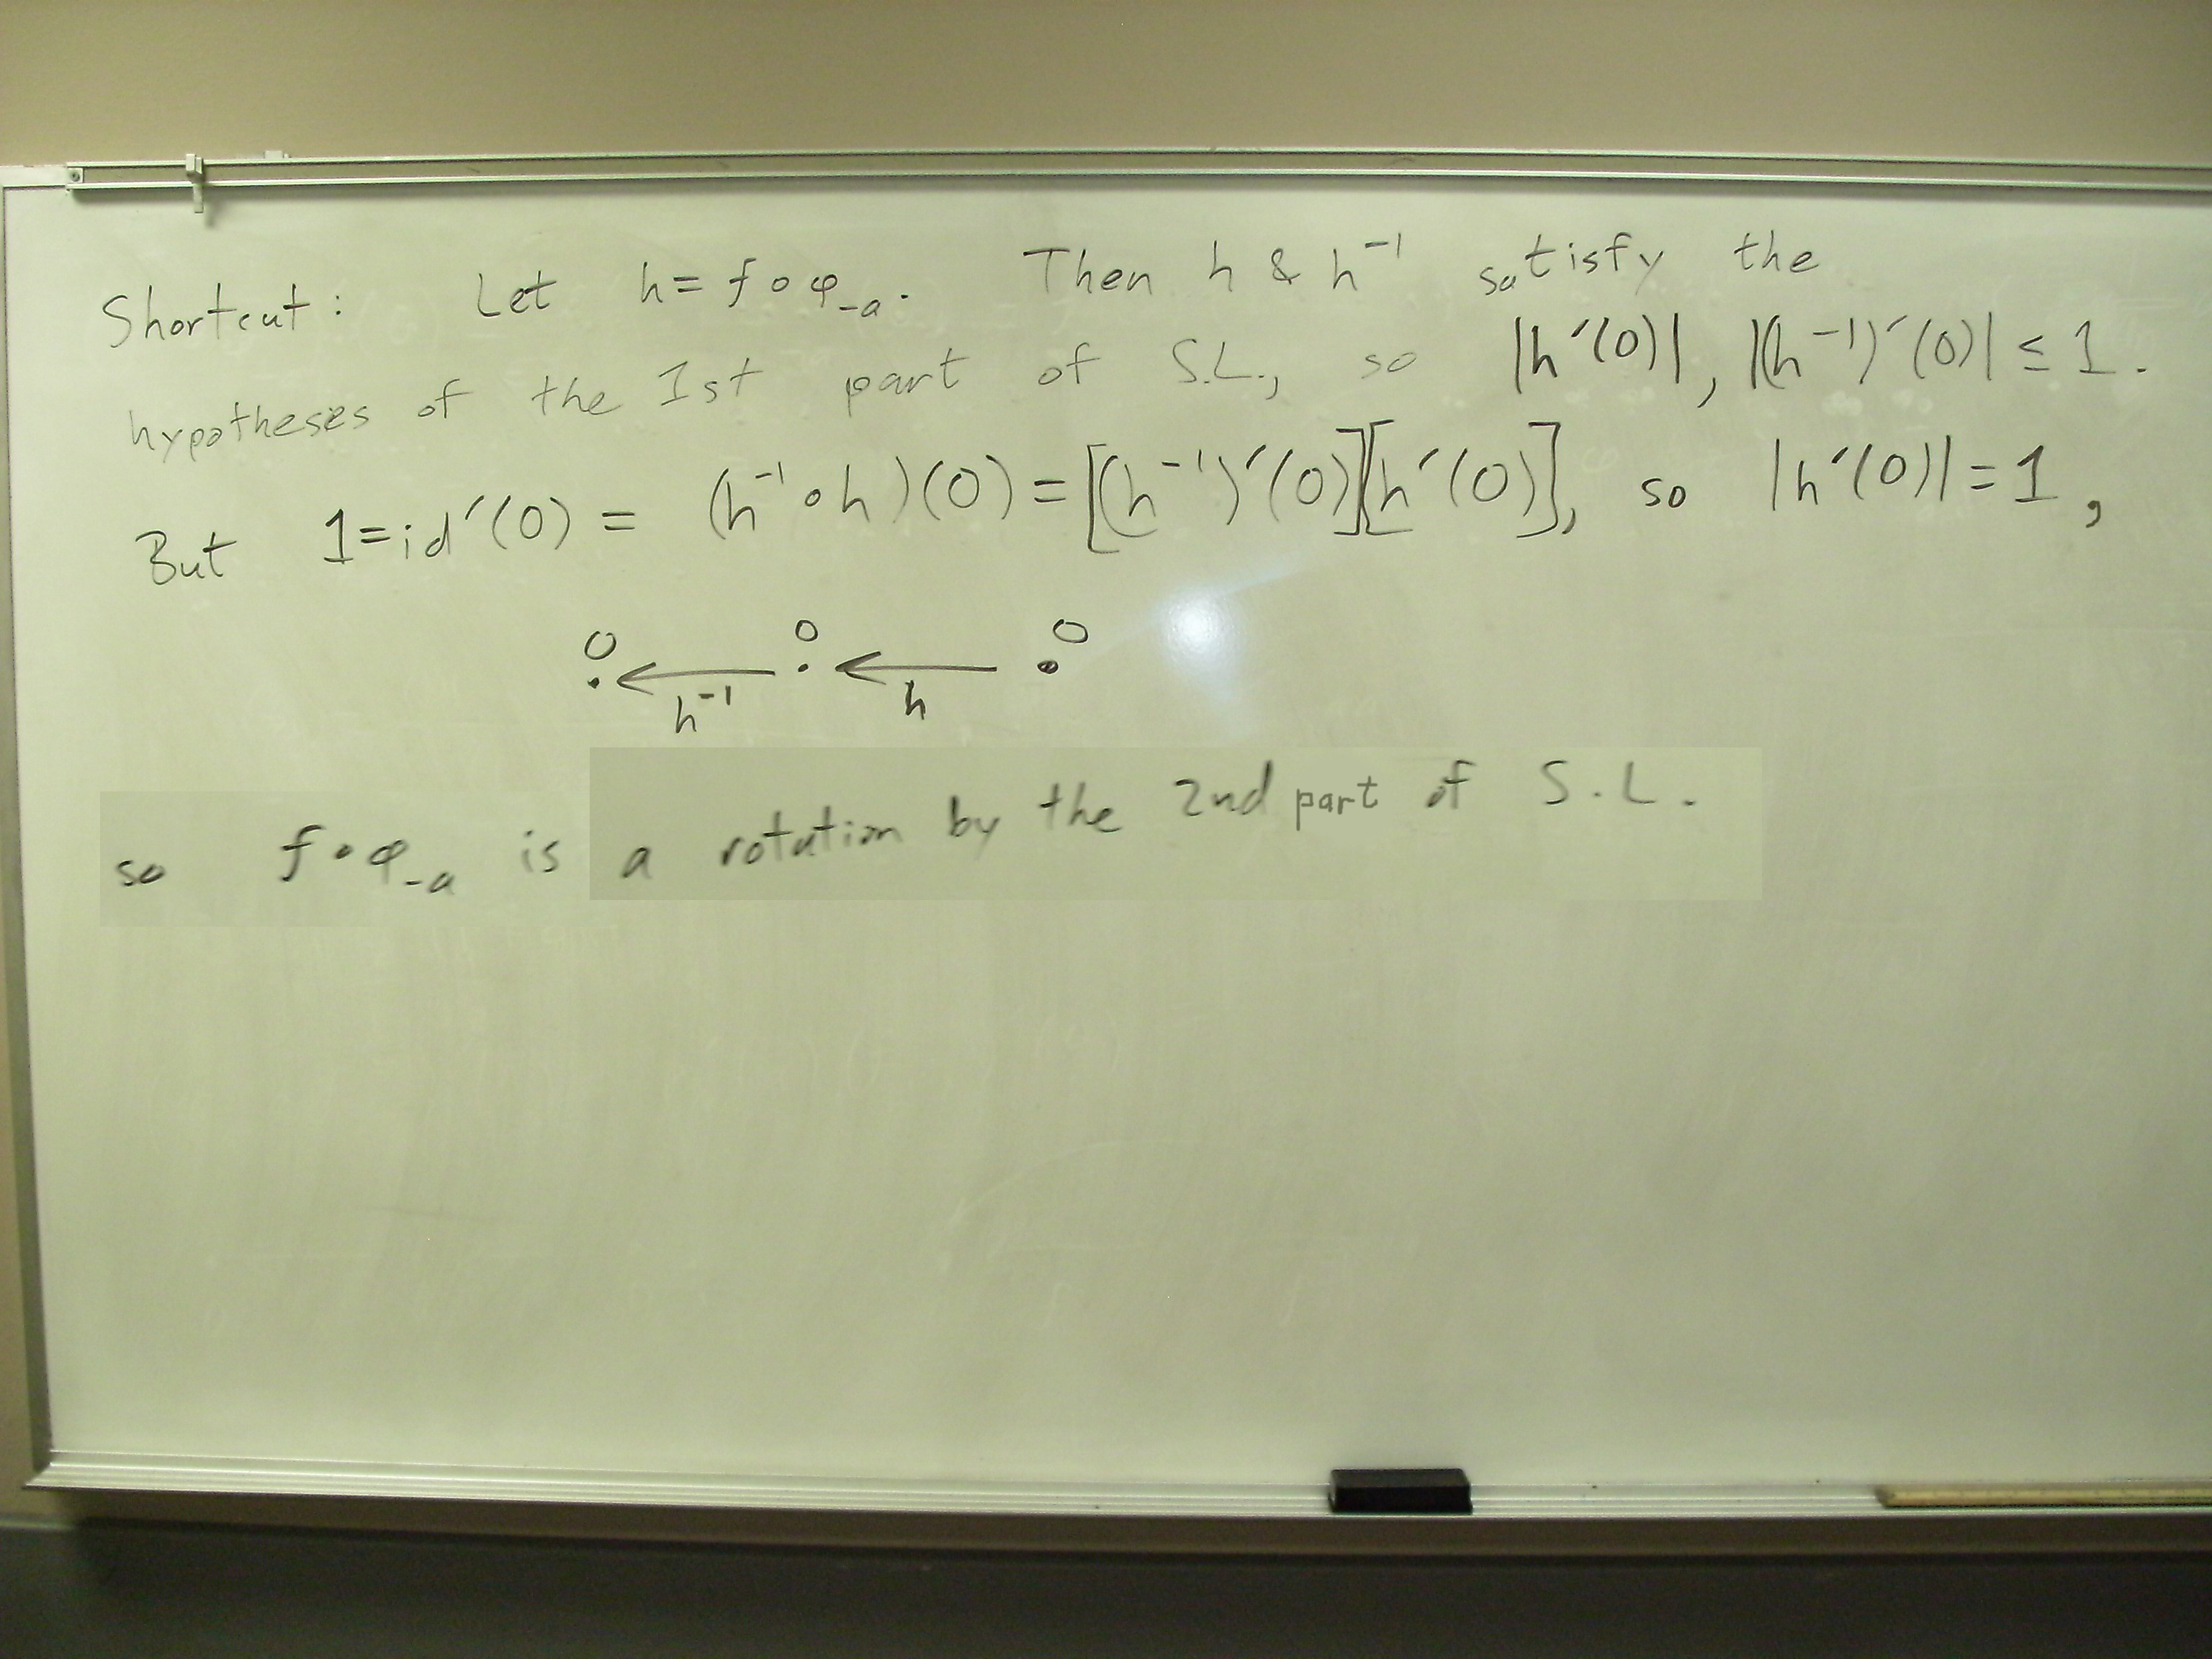 Shortcut: Let h = f∘φ₋ₐ. Then h & h⁻¹ satisfy the
hypotheses of the 1st part of S.L., so |h′(0)|, |(h⁻¹)′(0)| ≤ 1.
But 1=id′(0) = (h⁻¹∘h)(0) = [(h⁻¹)′(0)][h′(0)], so |h′(0)| = 1,
0 0 0
h⁻¹ h
so f∘φ₋ₐ is a rotation by the 2nd part of S.L.